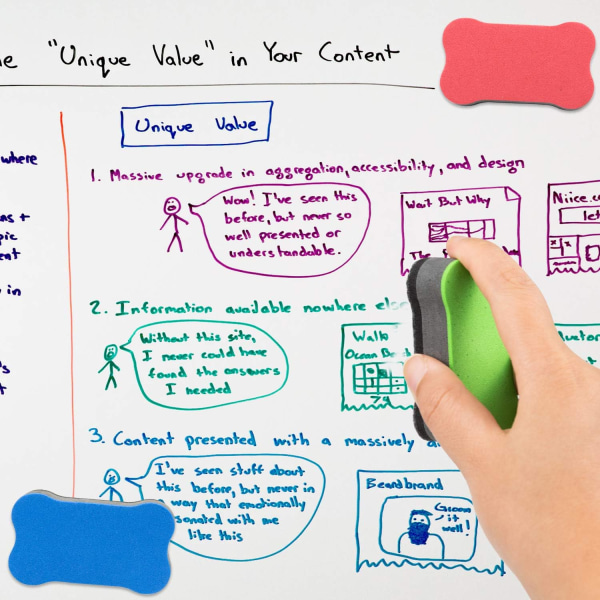 "Unique Value" in Your Content
where
Unique Value
1. Massive upgrade in aggregation, accessibility, and design
Wow! I've seen this
before, but never so
well presented or
understandable.
Wait But Why
The
Niice.
let
in
2. Information available nowhere else
Without this site,
I never could have
found the answers
I needed
Walk
Ocean
3. Content presented with a massively
I've seen stuff about
this before, but never in
way that emotionally
me
like this
Beardbrand
Groom
it
well!